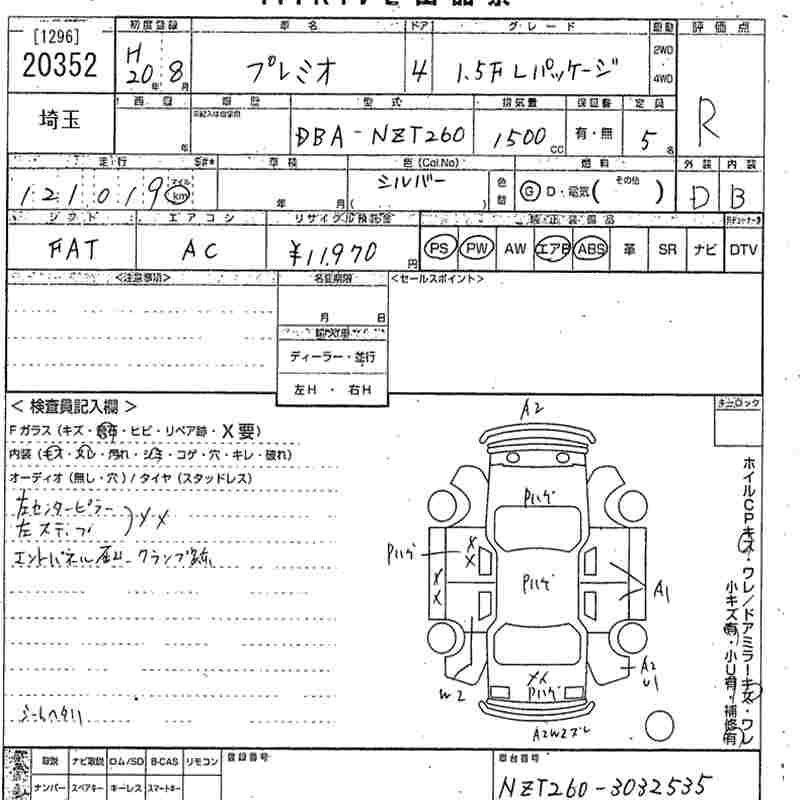 [1296]
20352
初度登録 車名 ドア グレード 駆動 評価点
H20年8月 プレミオ 4 1.5F Lパッケージ 2WD 4WD
R
埼玉
車歴 型式 排気量 保証書 定員
年 DBA-NZT260 1500cc 有・無 5名
走行 車検 色(Col.No) 燃料 外装 内装
121019 マイル km 年 月 シルバー ( ) 色替 G D・電気( その他 ) D B
シフト エアコン リサイクル預託金 純正装備品
FAT AC ¥11,970円 PS PW AW エアB ABS 革 SR ナビ DTV
<注意事項> 名変期限 <セールスポイント>
月 日
輸入車
ディーラー・並行
左H ・ 右H
< 検査員記入欄 > キーロック
Fガラス (キズ・・ヒビ・リペア跡・X要)
内装 (キズ・ヌレ・汚れ・シミ・コゲ・穴・キレ・破れ)
オーディオ (無し・穴) / タイヤ (スタッドレス)
左センターピラー
左ステップ ) XX
クランプ跡
シートヘタリ
A2
Pハゲ
Pハゲ XX
XX
Pハゲ
A1
W2
A2
U1
XX
Pハゲ
A2W2ズレ
ホイルCPキズ・ワレ/ドアミラーキズ・ワレ
小キズ有・小U有・補修有
取説 ナビ取説 ロム/SD B-CAS リモコン 登録番号 車台番号
ナンバー スペアキー キーレス スマートキー NZT260-3032535